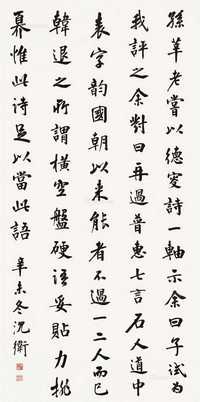 孫莘老嘗以德叟詩一軸示余曰子試為
我評之余對曰再過普惠七言石人道中
表字韵國朝以来能者不過一二人而已
韓退之所謂橫空盤硬語妥貼力排
奡惟此诗足以當此語 辛未冬沈衛